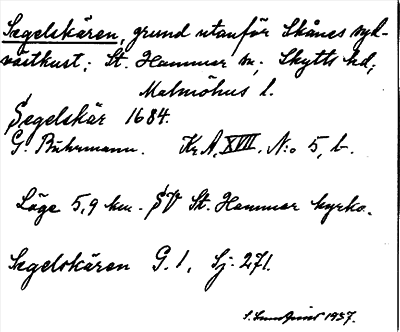 Segelskären, grund utanför Skånes syd-
västkust; St. Hammar sn; Skytts hd;
Malmöhus l.
Segelskär 1684.
G. Buhrmann. Kr.A. XVII. N:o 5, b.
Läge 5,9 km. SV St. Hammar kyrka.
Segelskären G. 1, Sj. 271.
1937.